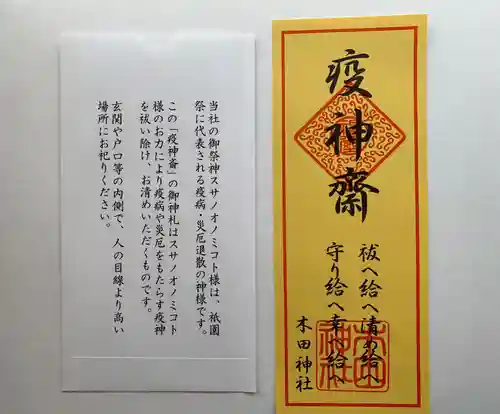 疫神齋
祓へ給へ清め給へ
守り給へ幸へ給へ
本田神社
当社の御祭神スサノオノミコト様は、祇園
祭に代表される疫病・災厄退散の神様です。
この「疫神斎」の御神札はスサノオノミコト
様のお力により疫病や災厄をもたらす疫神
を祓い除け、お清めいただくものです。
玄関や戸口等の内側で、人の目線より高い
場所にお祀りください。